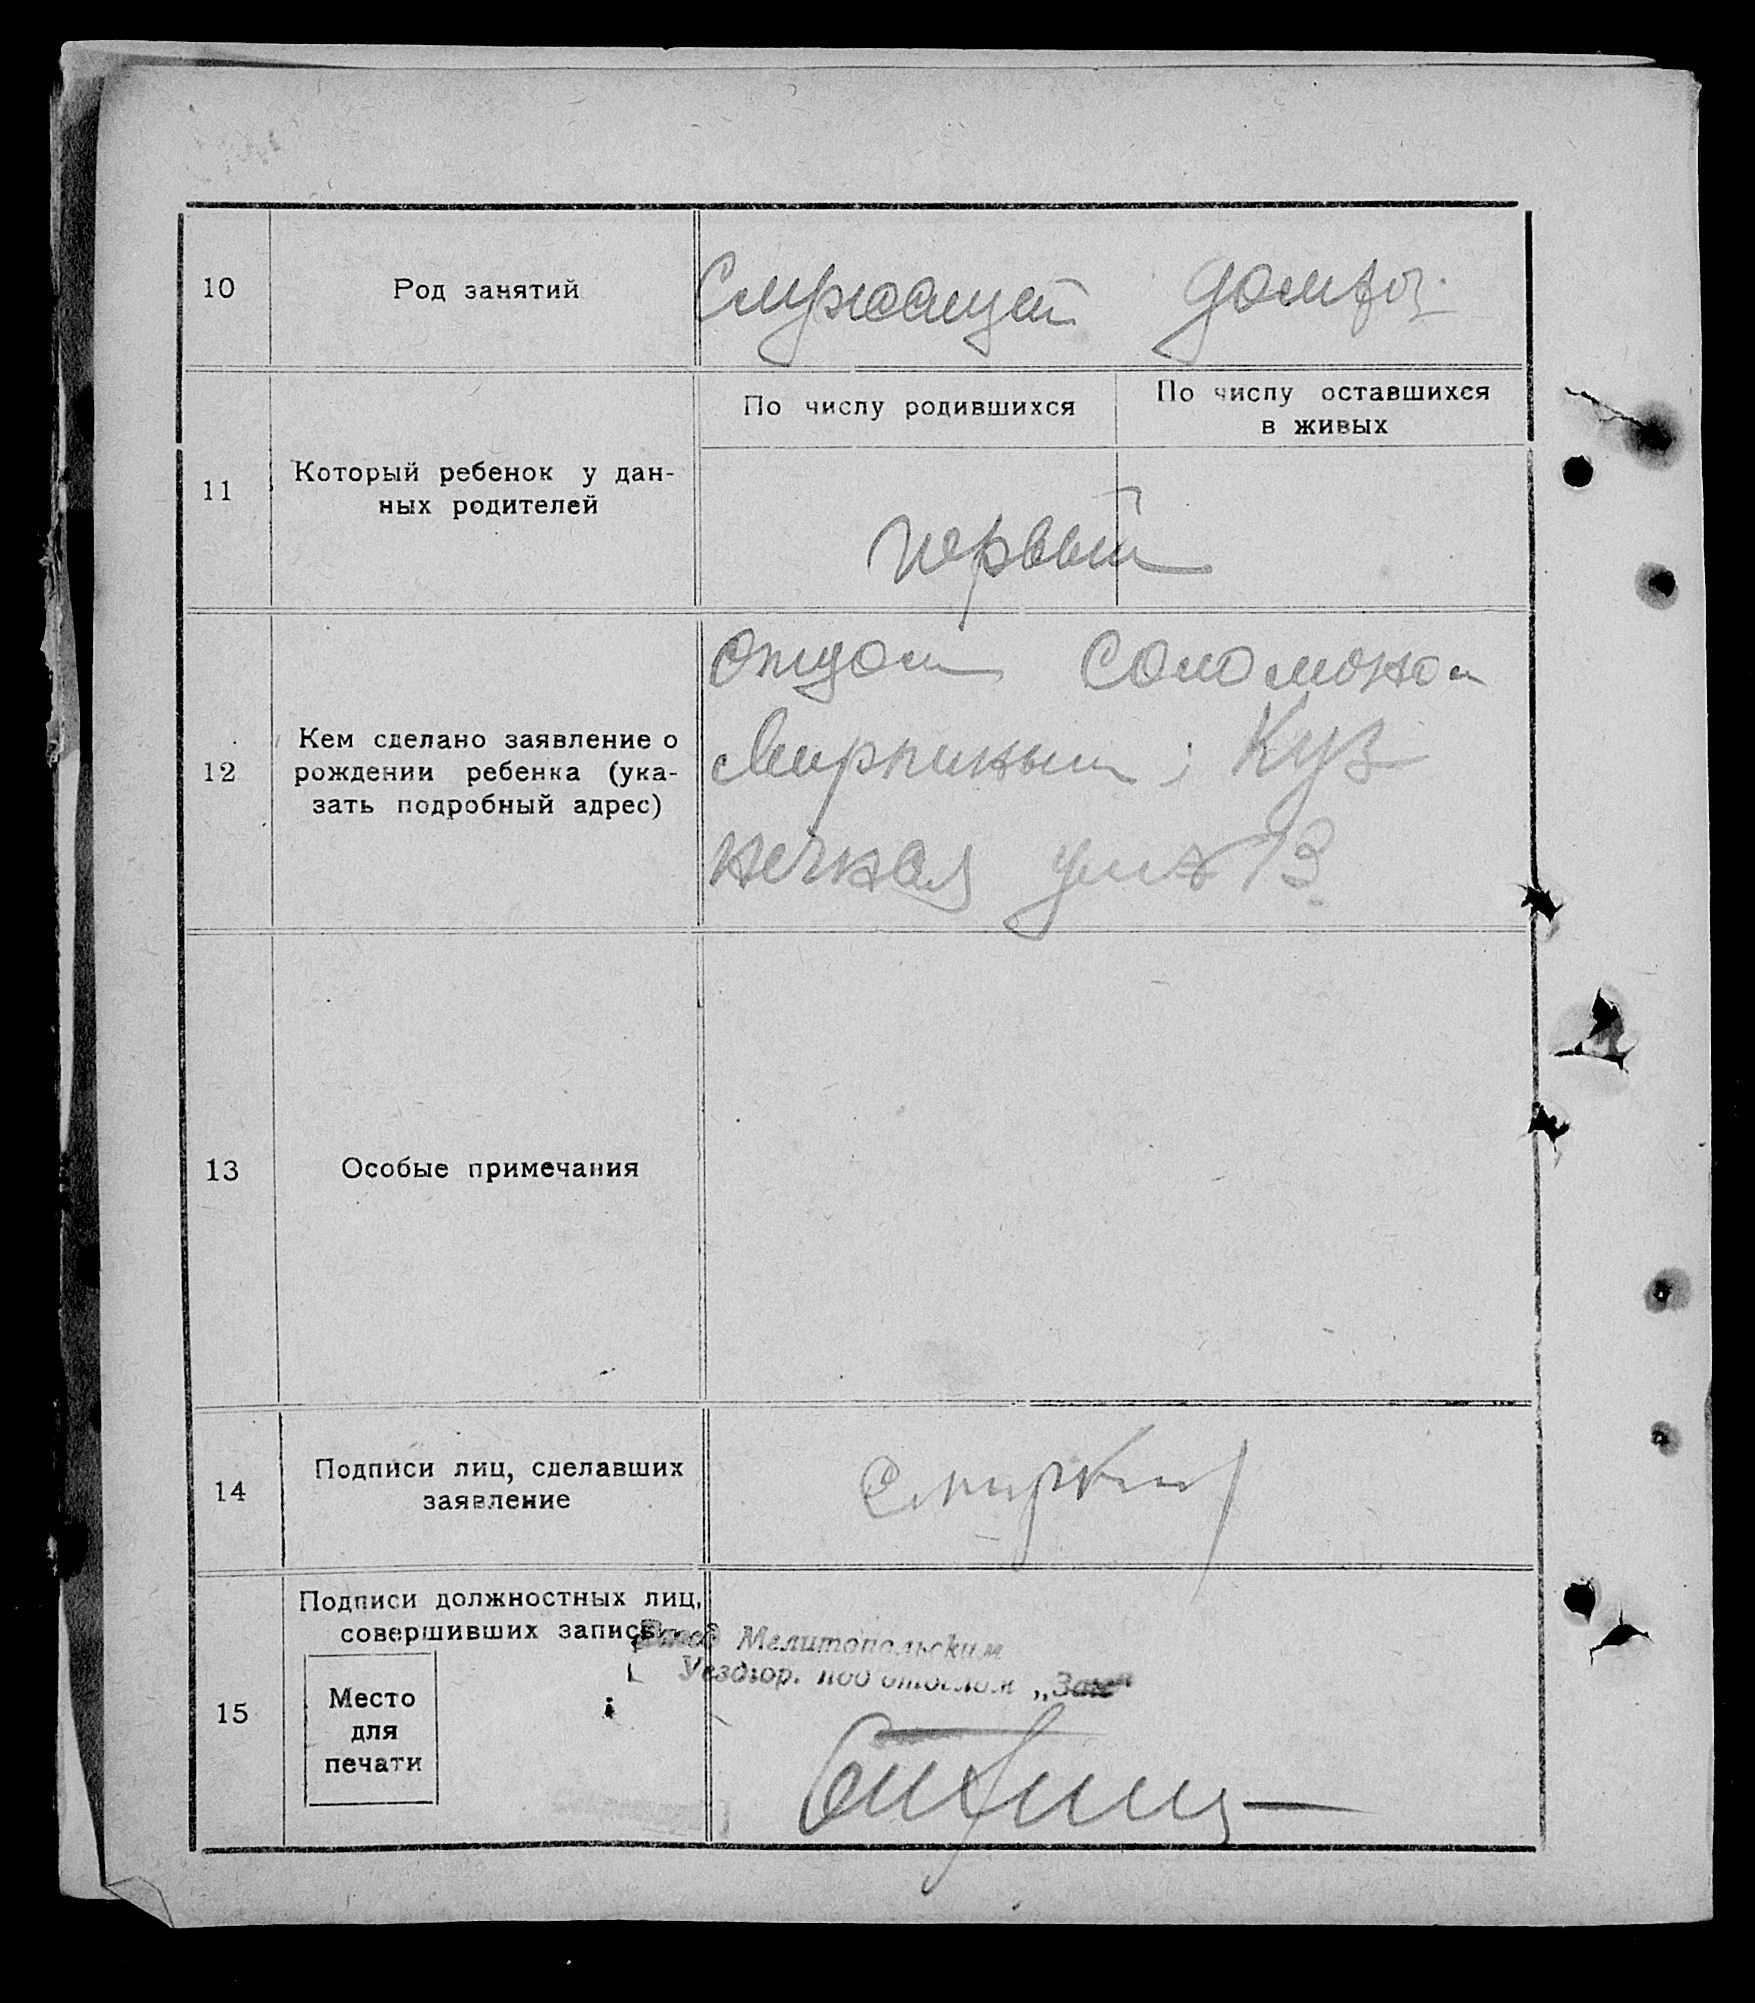 10
Род занятий
Служащий
11
Который ребенок у дан-
ных родителей
По числу родившихся
По числу оставшихся
в живых
первый
12
Кем сделано заявление о
рождении ребенка (ука-
зать подробный адрес)
отцом Соломоном
Куз
нечная ул 13
13
Особые примечания
14
Подписи лиц, сделавших
заявление
15
Подписи должностных лиц,
совершивших запись
Мелитопольским
Уездгор. под отделом „Загс“
Место
для
печати